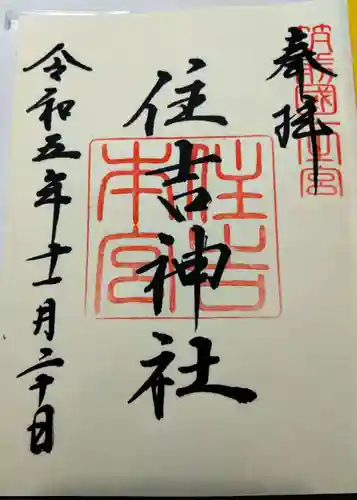 奉拝
筑前國一宮
住吉神社
住吉本宮
令和五年十一月二十日